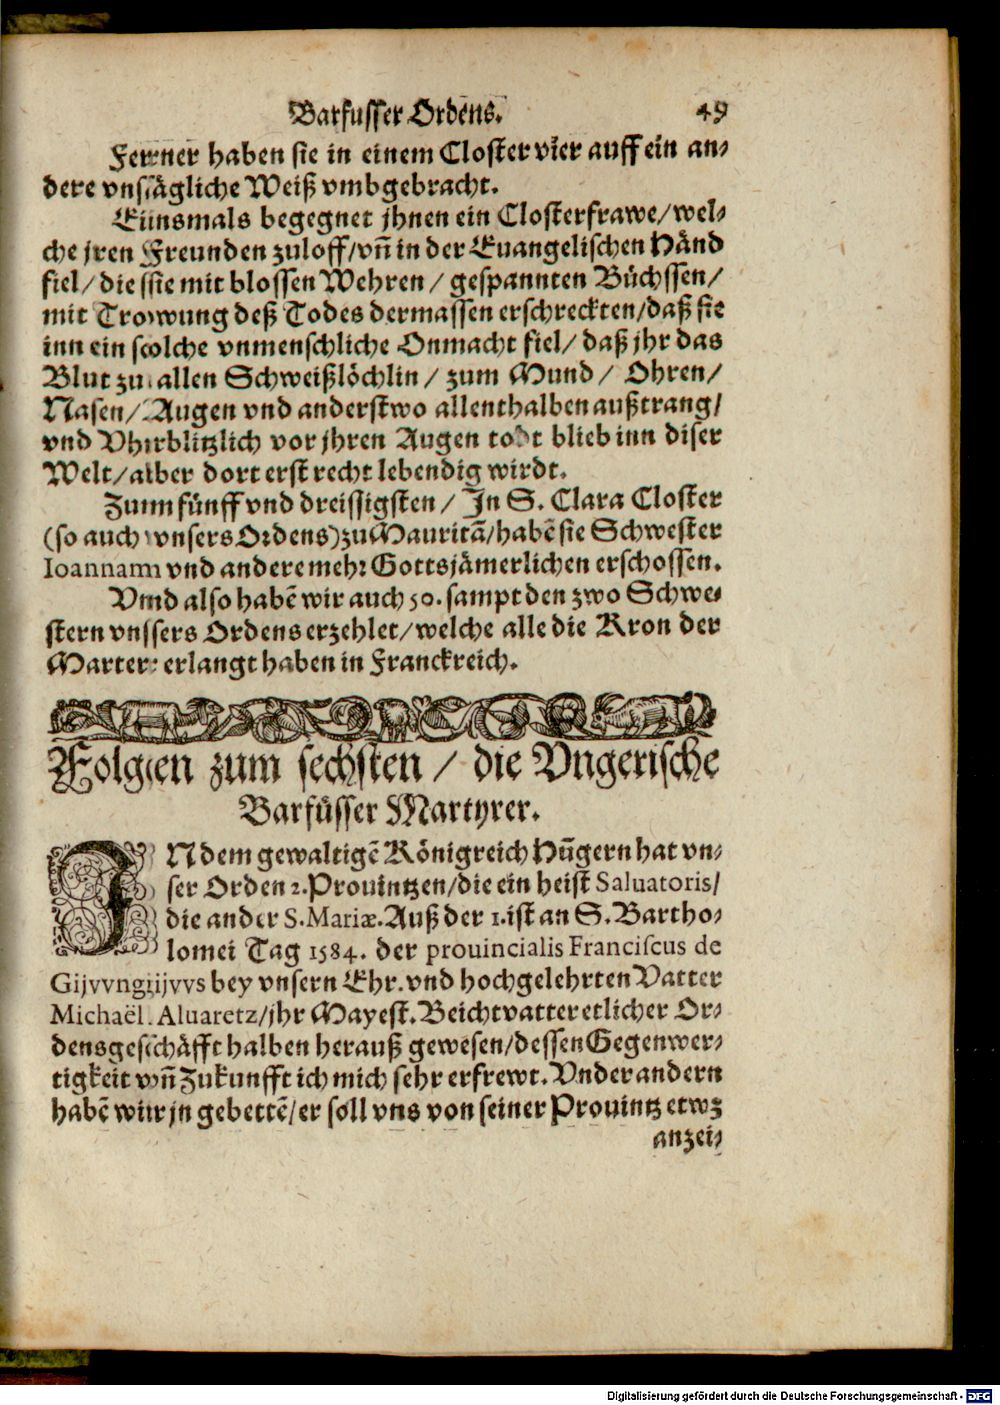 Barfusser Ordens. 49
Ferrner haben sie in einem Closter vier auff ein an⸗
dere vnsägliche Weiß vmbgebracht.
Einsmals begegnet jhnen ein Closterfrawe/wel⸗
che jren Freunden zuloff/vñ in der Euangelischen Händ
fiel/die sie mit blossen Wehren/ gespannten Büchssen/
mit Trowung deß Todes dermassen erschreckten/daß sie
inn ein solche vnmenschliche Onmacht fiel/ daß jhr das
Blut zu allen Schweißlöchlin/ zum Mund/ Ohren/
Nasen/ Augen vnd anderstwo allenthalben außtrang/
vnd Vhrblitzlich vor jhren Augen todt blieb inn diser
Welt/aber dort erst recht lebendig wirdt.
Zum fünff vnd dreissigsten/ In S. Clara Closter
(so auch vnsers Ordens) zu Mauritã/habẽ sie Schwester
Ioannam vnd andere mehr Gottsjämerlichen erschossen.
Vnd also habẽ wir auch 50. sampt den zwo Schwe⸗
stern vnsers Ordens erzehlet/welche alle die Kron der
Marter erlangt haben in Franckreich.
Folgen zum sechsten/ die Vngerische
Barfüsser Martyrer.
IN dem gewaltigẽ Königreich Hũgern hat vn⸗
ser Orden 2. Prouintzen/die ein heist Saluatoris/
die ander S. Mariæ. Auß der 1. ist an S. Bartho⸗
lomei Tag 1584. der prouincialis Franciscus de
Gijvvngijvvs bey vnsern Ehr. vnd hochgelehrten Vatter
Michaël Aluaretz/jhr Mayest. Beichtvatter etlicher Or⸗
densgeschäfft halben herauß gewesen/dessen Gegenwer⸗
tigkeit vñ Zukunfft ich mich sehr erfrewt. Vnder andern
habẽ wir jn gebettẽ/er soll vns von seiner Prouintz etwz
anzei⸗
Digitalisierung gefördert durch die Deutsche Forschungsgemeinschaft - DFG